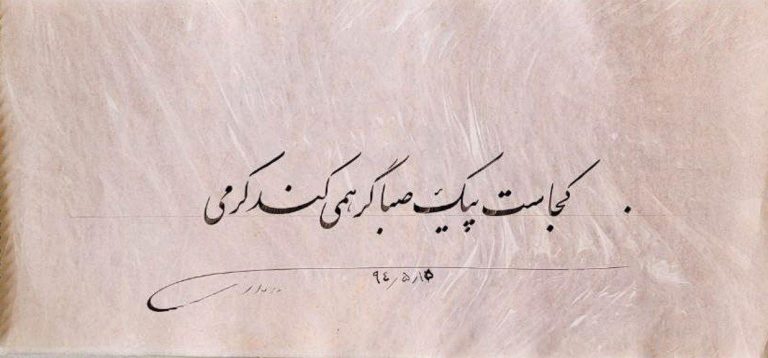 کجاست پیک صبا گر همی کند کرمی
۹۴/۵/۱۵